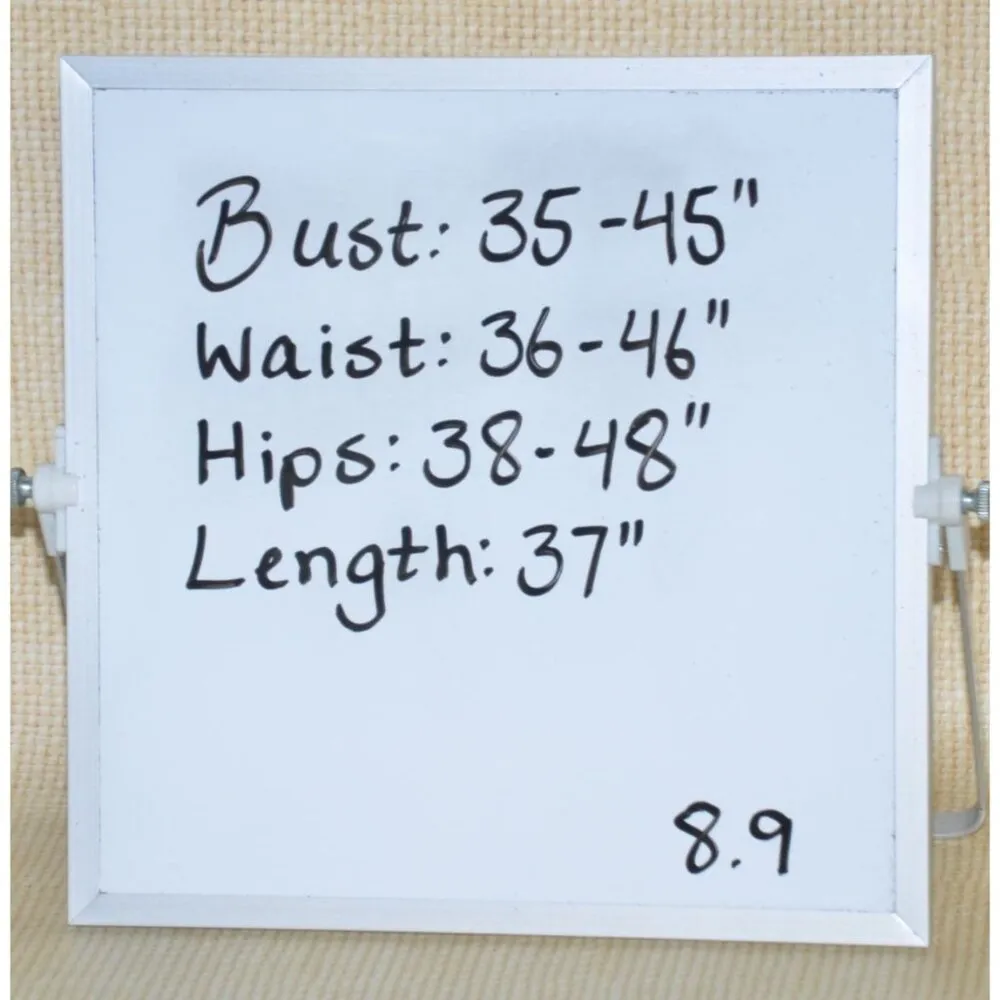 Bust: 35-45"
Waist: 36-46"
Hips: 38-48"
Length: 37"
8.9